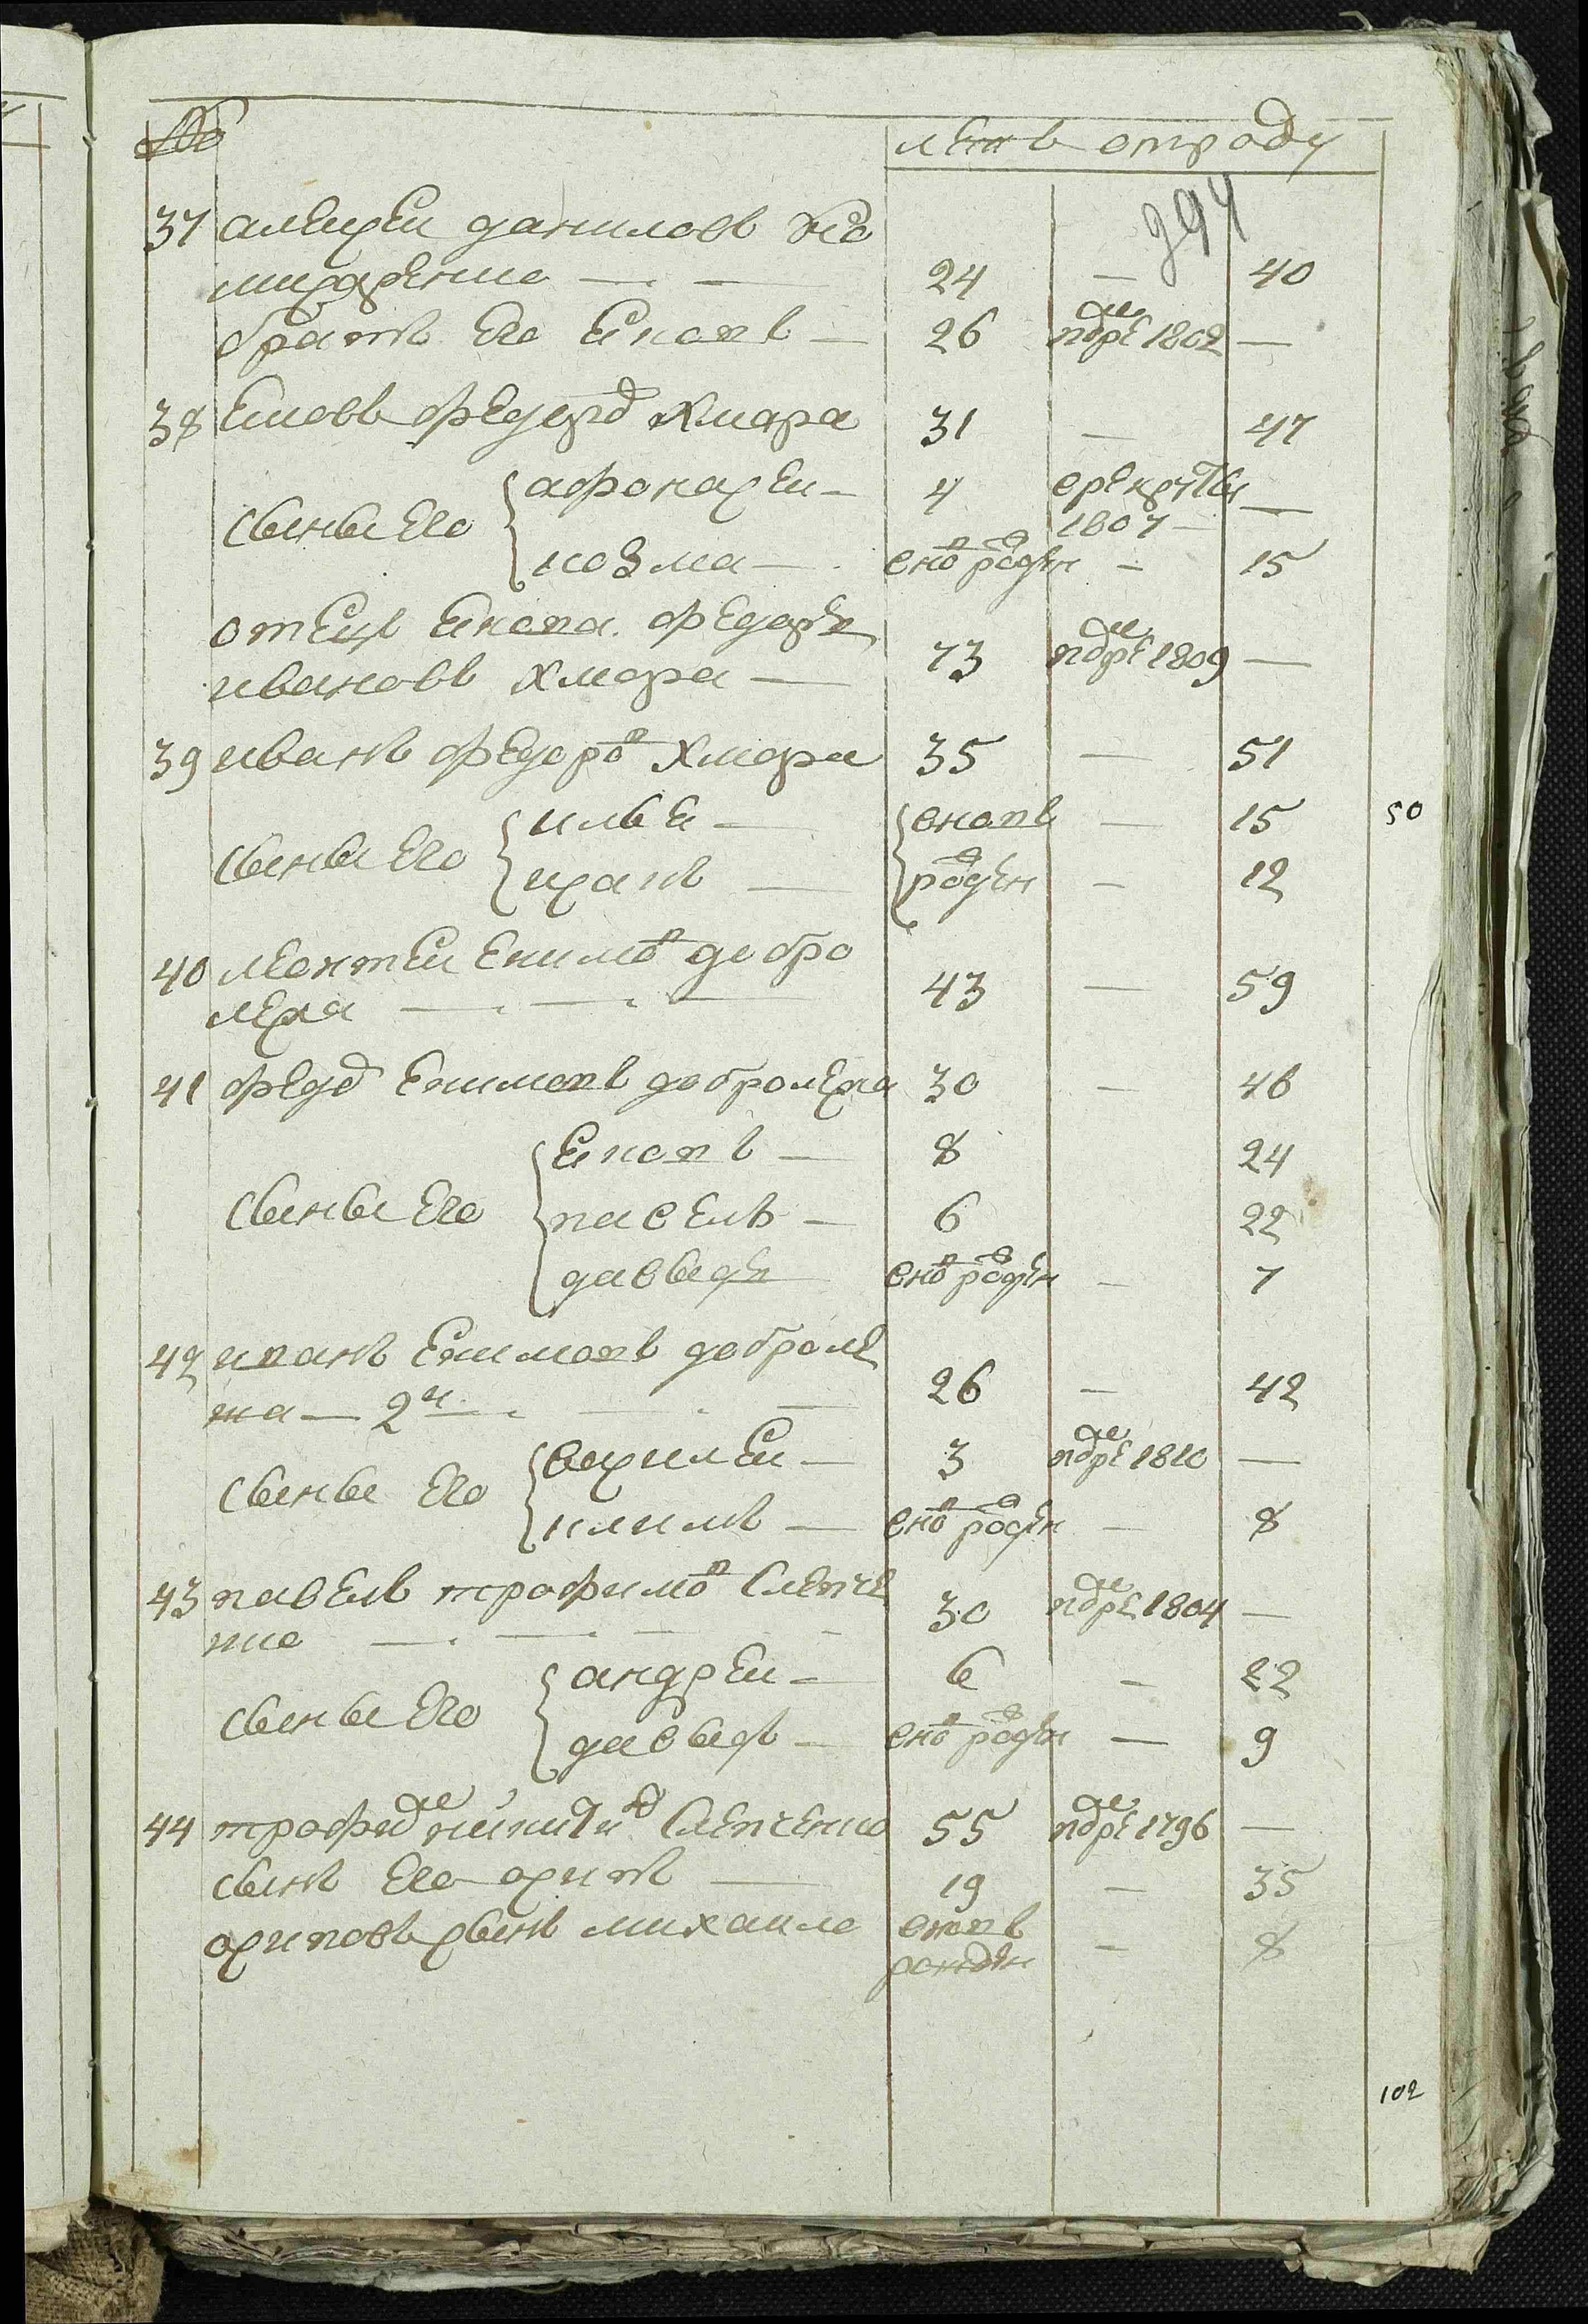 № летъ отроду
394
37 алексей даниловъ ко
мисаренко — — 24 — 40
братъ Его Яковъ — 26 помре 1802 —
38 Яковъ федоров Хмара 31 — 47
сыны Его афонасей — 4 врекруты 1807 —
козма — внов рожден — 15
отецъ Якова федоръ
ивановъ Хмара — 73 помре 1809 —
39 иванъ федоров Хмара 35 — 51
50
сыны Его илья — вновь — 15
исакъ — рожден — 12
40 леонтей Екимов добро
лежа — — — 43 — 59
41 федор Екимовъ добролежа 30 — 46
сыны Его Яковъ — 8 24
павелъ — 6 22
давыдъ внов рожден — 7
42 иванъ Екимовъ доброле
жа — 2й — — — 26 — 42
сыны Его василей — 3 помре 1810 —
климъ — внов рожден — 8
43 павелъ трофимов Слепче
нко — — — 30 помре 1804 —
сыны Его андрей — 6 — 22
давыдъ — внов рожден — 9
44 трофим никитин Слепченко 55 помре 1796 —
сынъ Его осипъ — 19 — 35
осиповъ сынъ михаило вновъ
рожден — 8
102